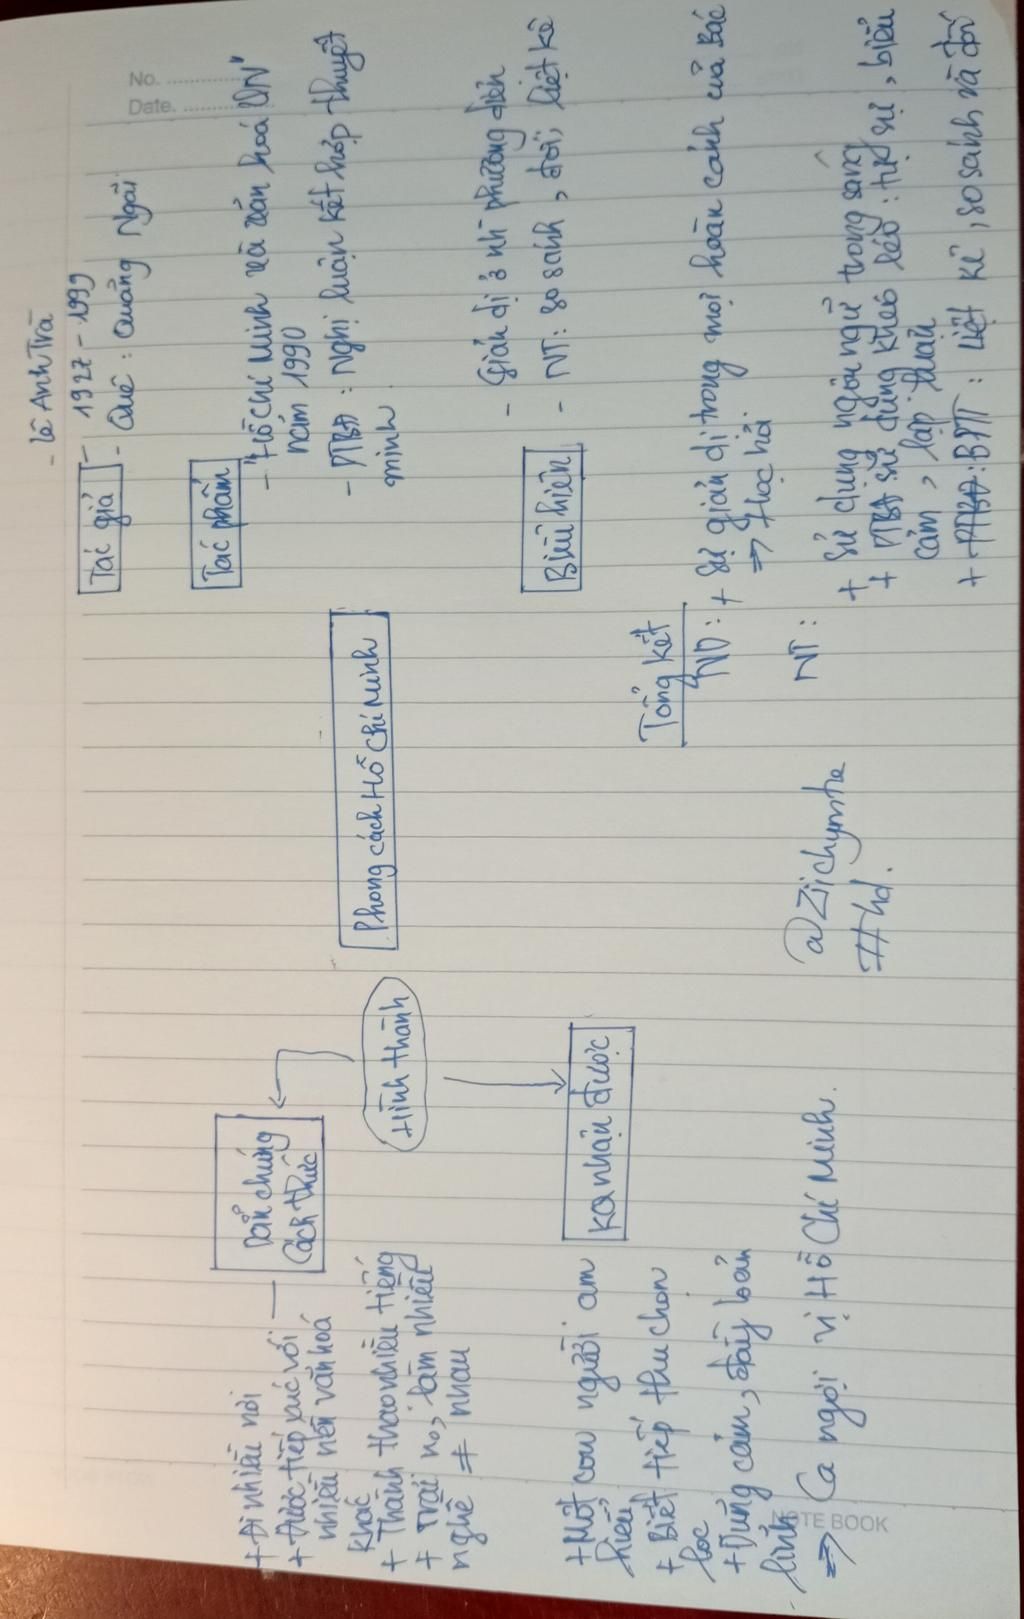 No. ..............
Date. ..............
- Lê Anh Trà
Tác giả
- 1927 - 1999
- Quê: Quảng Ngãi
Tác phẩm
- "Hồ Chí Minh và văn hoá VN"
năm 1990
- PTBĐ: Nghị luận kết hợp thuyết
minh
Phong cách Hồ Chí Minh
Biểu hiện
- Giản dị ở nh` phương diện
- NT: so sánh, đối, liệt kê
Tổng kết
ND: + Sự giản dị trong mọi hoàn cảnh của Bác
=> Học hỏi
NT:
+ Sử dụng ngôn ngữ trong sáng
+ PTBĐ sử dụng khéo léo: tự sự, biểu
cảm, lập luận
+ PTBĐ: BPTT: Liệt kê, so sánh và đối
Hình thành
Dẫn chứng
Cách thức
+ Đi nhiều nơi
+ Được tiếp xúc với
nhiều nền văn hoá
khác
+ Thành thạo nhiều tiếng
+ Trải no, làm nhiều
nghề ≠ nhau
KQ nhận được
+ Một con người am
hiểu
+ Biết tiếp thu chọn
lọc
+ Dũng cảm, đầy bản
lĩnh
=> Ca ngợi vị Hồ Chí Minh.
@Ziichymte
#hd.
NOTE BOOK